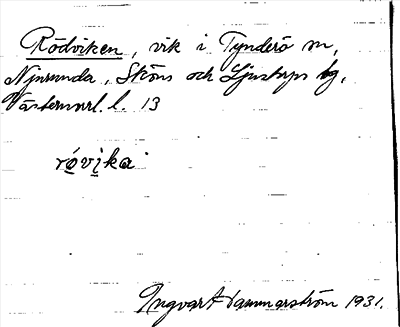 Rödviken, vik i Tynderö sn,
Njurunda, Sköns och Ljustorps tg,
Västernorrl. l. 13
rǫ́vi̜ka
Ingvart Hammarström 1931.